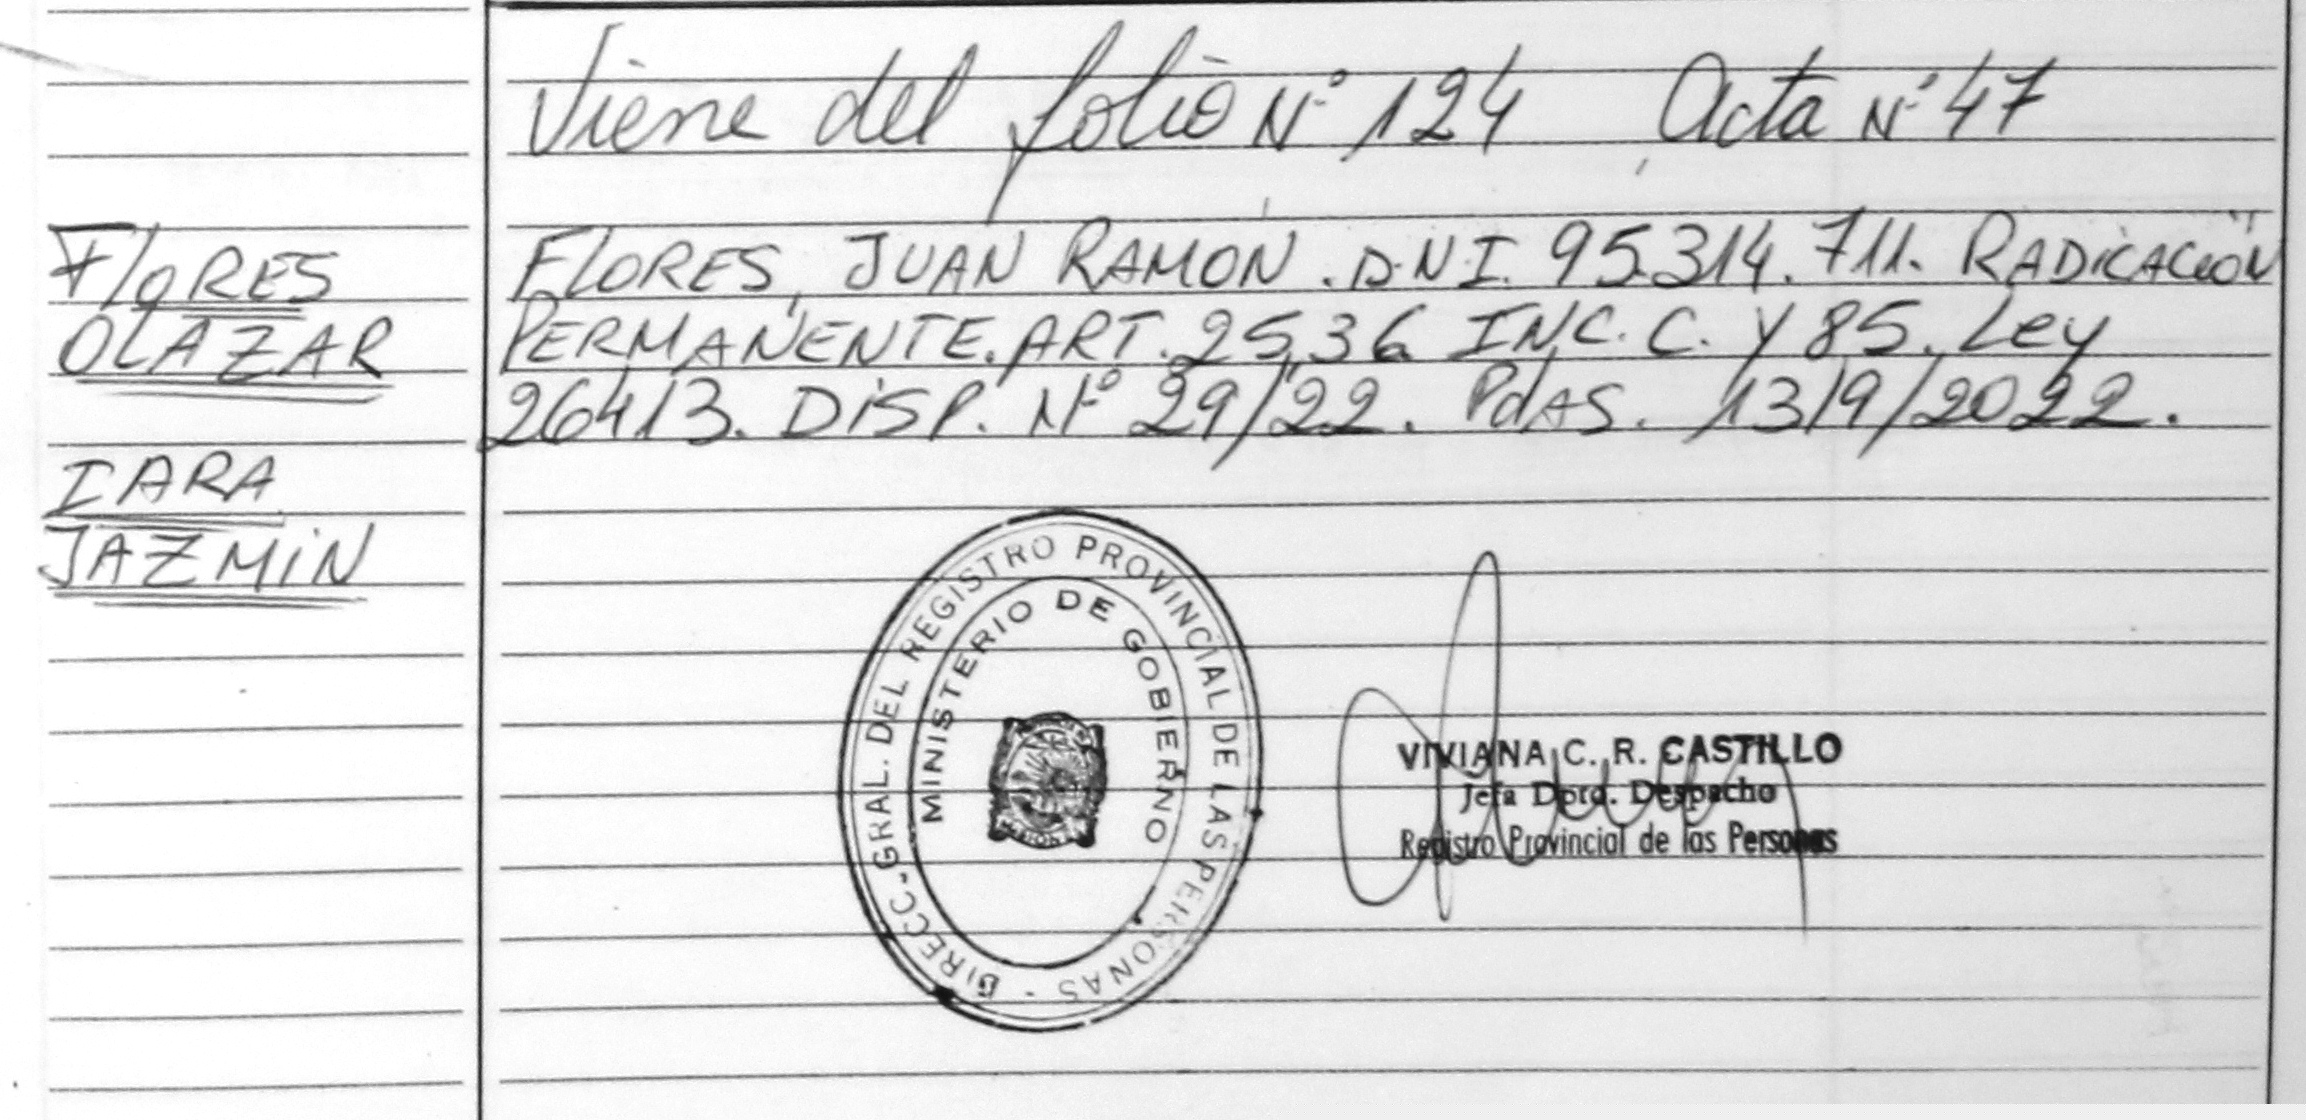 Viene del folio Nº 124 Acta Nº 47
FLORES
OLAZAR
IARA
JAZMIN
FLORES, JUAN RAMON. D.N.I. 95.314.711. RADICACIÓN
PERMANENTE. ART. 25,36 INC. C. Y 85. Ley
26413. DISP. Nº 29/22. PdAS. 13/9/2022.
DIRECC. GRAL. DEL REGISTRO PROVINCIAL DE LAS PERSONAS
MINISTERIO DE GOBIERNO
VIVIANA C. R. CASTILLO
Jefa Dptd. Despacho
Registro Provincial de las Personas